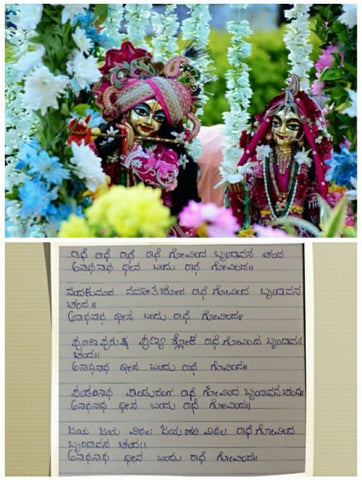 ರಾಧೆ ರಾಧೆ ರಾಧೆ ರಾಧೆ ಗೋವಿಂದ ಬೃಂದಾವನ ಚಂದ
ಅನಾಥನಾಥ ದೀನ ಬಂಧು ರಾಧೆ ಗೋವಿಂದ॥
ನಂದಕುಮಾರ ನವನೀತಚೋರ ರಾಧೆ ಗೋವಿಂದ ಬೃಂದಾವನ
ಚಂದ॥
ಅನಾಥನಾಥ ದೀನ ಬಂಧು ರಾಧೆ ಗೋವಿಂದ॥
ಪುರಾಣಪುರುಷ ಪುಣ್ಯ ಶ್ಲೋಕ ರಾಧೆ ಗೋವಿಂದ ಬೃಂದಾವನ
ಚಂದ॥
ಅನಾಥನಾಥ ದೀನ ಬಂಧು ರಾಧೆ ಗೋವಿಂದ॥
ಪಂಢರಿನಾಥ ಪಾಂಡುರಂಗ ರಾಧೆ ಗೋವಿಂದ ಬೃಂದಾವನ ಚಂದ॥
ಅನಾಥನಾಥ ದೀನ ಬಂಧು ರಾಧೆ ಗೋವಿಂದ॥
ಜಯ ಜಯ ವಿಠಲ ಜಯ ಹರಿ ವಿಠಲ ರಾಧೆ ಗೋವಿಂದ
ಬೃಂದಾವನ ಚಂದ॥
ಅನಾಥನಾಥ ದೀನ ಬಂಧು ರಾಧೆ ಗೋವಿಂದ॥